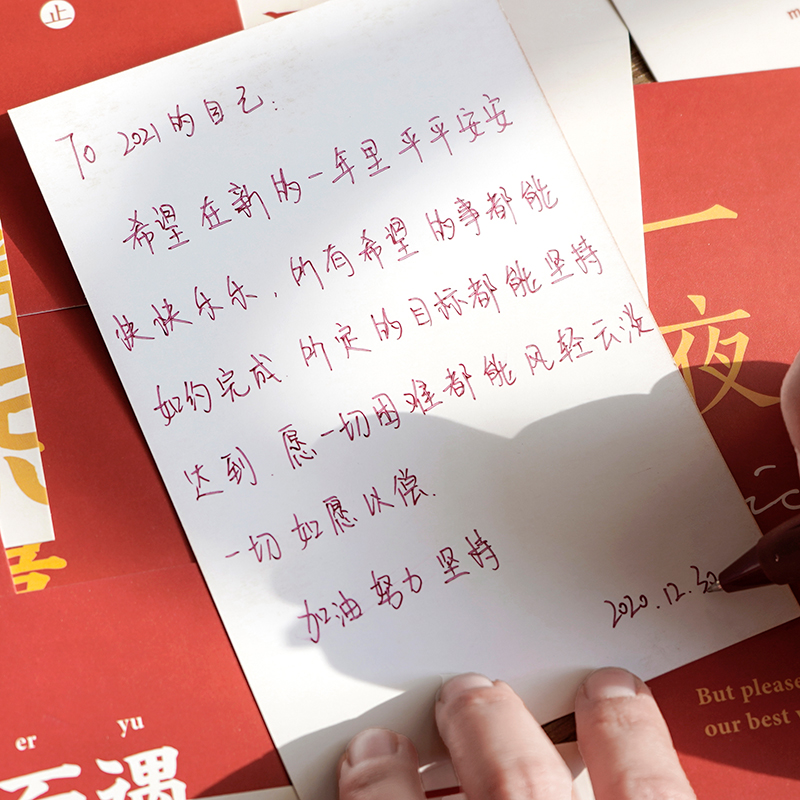 止
To 2021的自己:
希望在新的一年里平平安安
快快乐乐,所有希望的事都能
如约完成.所定的目标都能坚持
达到.愿一切困难都能风轻云淡
一切如愿以偿.
加油努力坚持
2020.12.30
一
夜
er yu
而遇
But please
our best